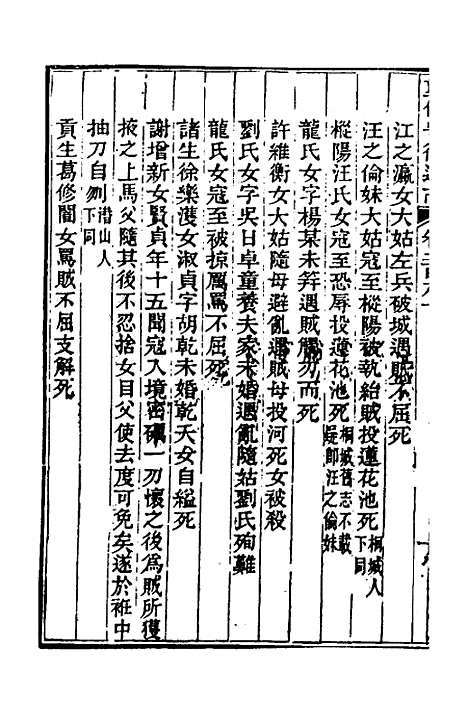 江之瀛女大姑左兵破城遇賊不屈死
汪之倫妹大姑寇至樅陽被執紿賊投蓮花池死桐城人下同
樅陽汪氏女寇至恐辱投蓮花池死桐城舊志不載疑即汪之倫妹
龍氏女字楊某未笄遇賊觸刃而死
許維衡女大姑隨母避亂遇賊母投河死女被殺
劉氏女字吳日卓童養夫家未婚遇亂隨姑劉氏殉難
龍氏女寇至被掠厲罵不屈死
諸生徐樂濩女淑貞字胡乾未婚乾夭女自縊死
謝增新女賢貞年十五聞寇入境密礪一刃懷之後爲賊所獲
掖之上馬父隨其後不忍捨女目父使去度可免矣遂於袵中
抽刀自刎潛山人下同
貢生葛修闇女罵賊不屈支解死